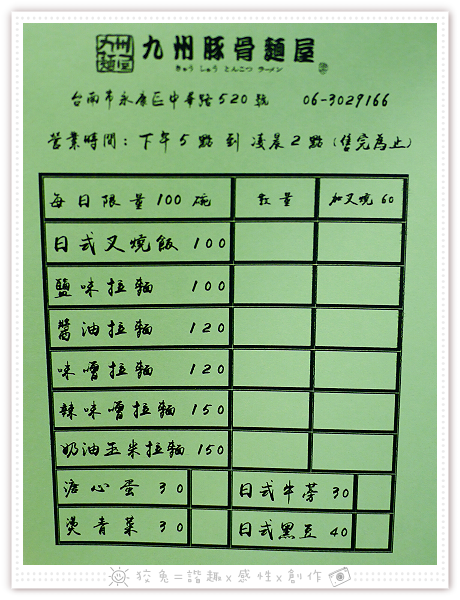 九州麵屋
九州豚骨麵屋
きゅう しゅう とんこつ ラーメン
台南市永康區中華路520號 06-3029166
營業時間：下午5點到凌晨2點(售完為止)
每日限量100碗 數量 加叉燒60
日式叉燒飯 100
鹽味拉麵 100
醬油拉麵 120
味噌拉麵 120
辣味噌拉麵 150
奶油玉米拉麵 150
溏心蛋 30 日式牛蒡 30
燙青菜 30 日式黑豆 40
狡兔=諧趣x感性x創作